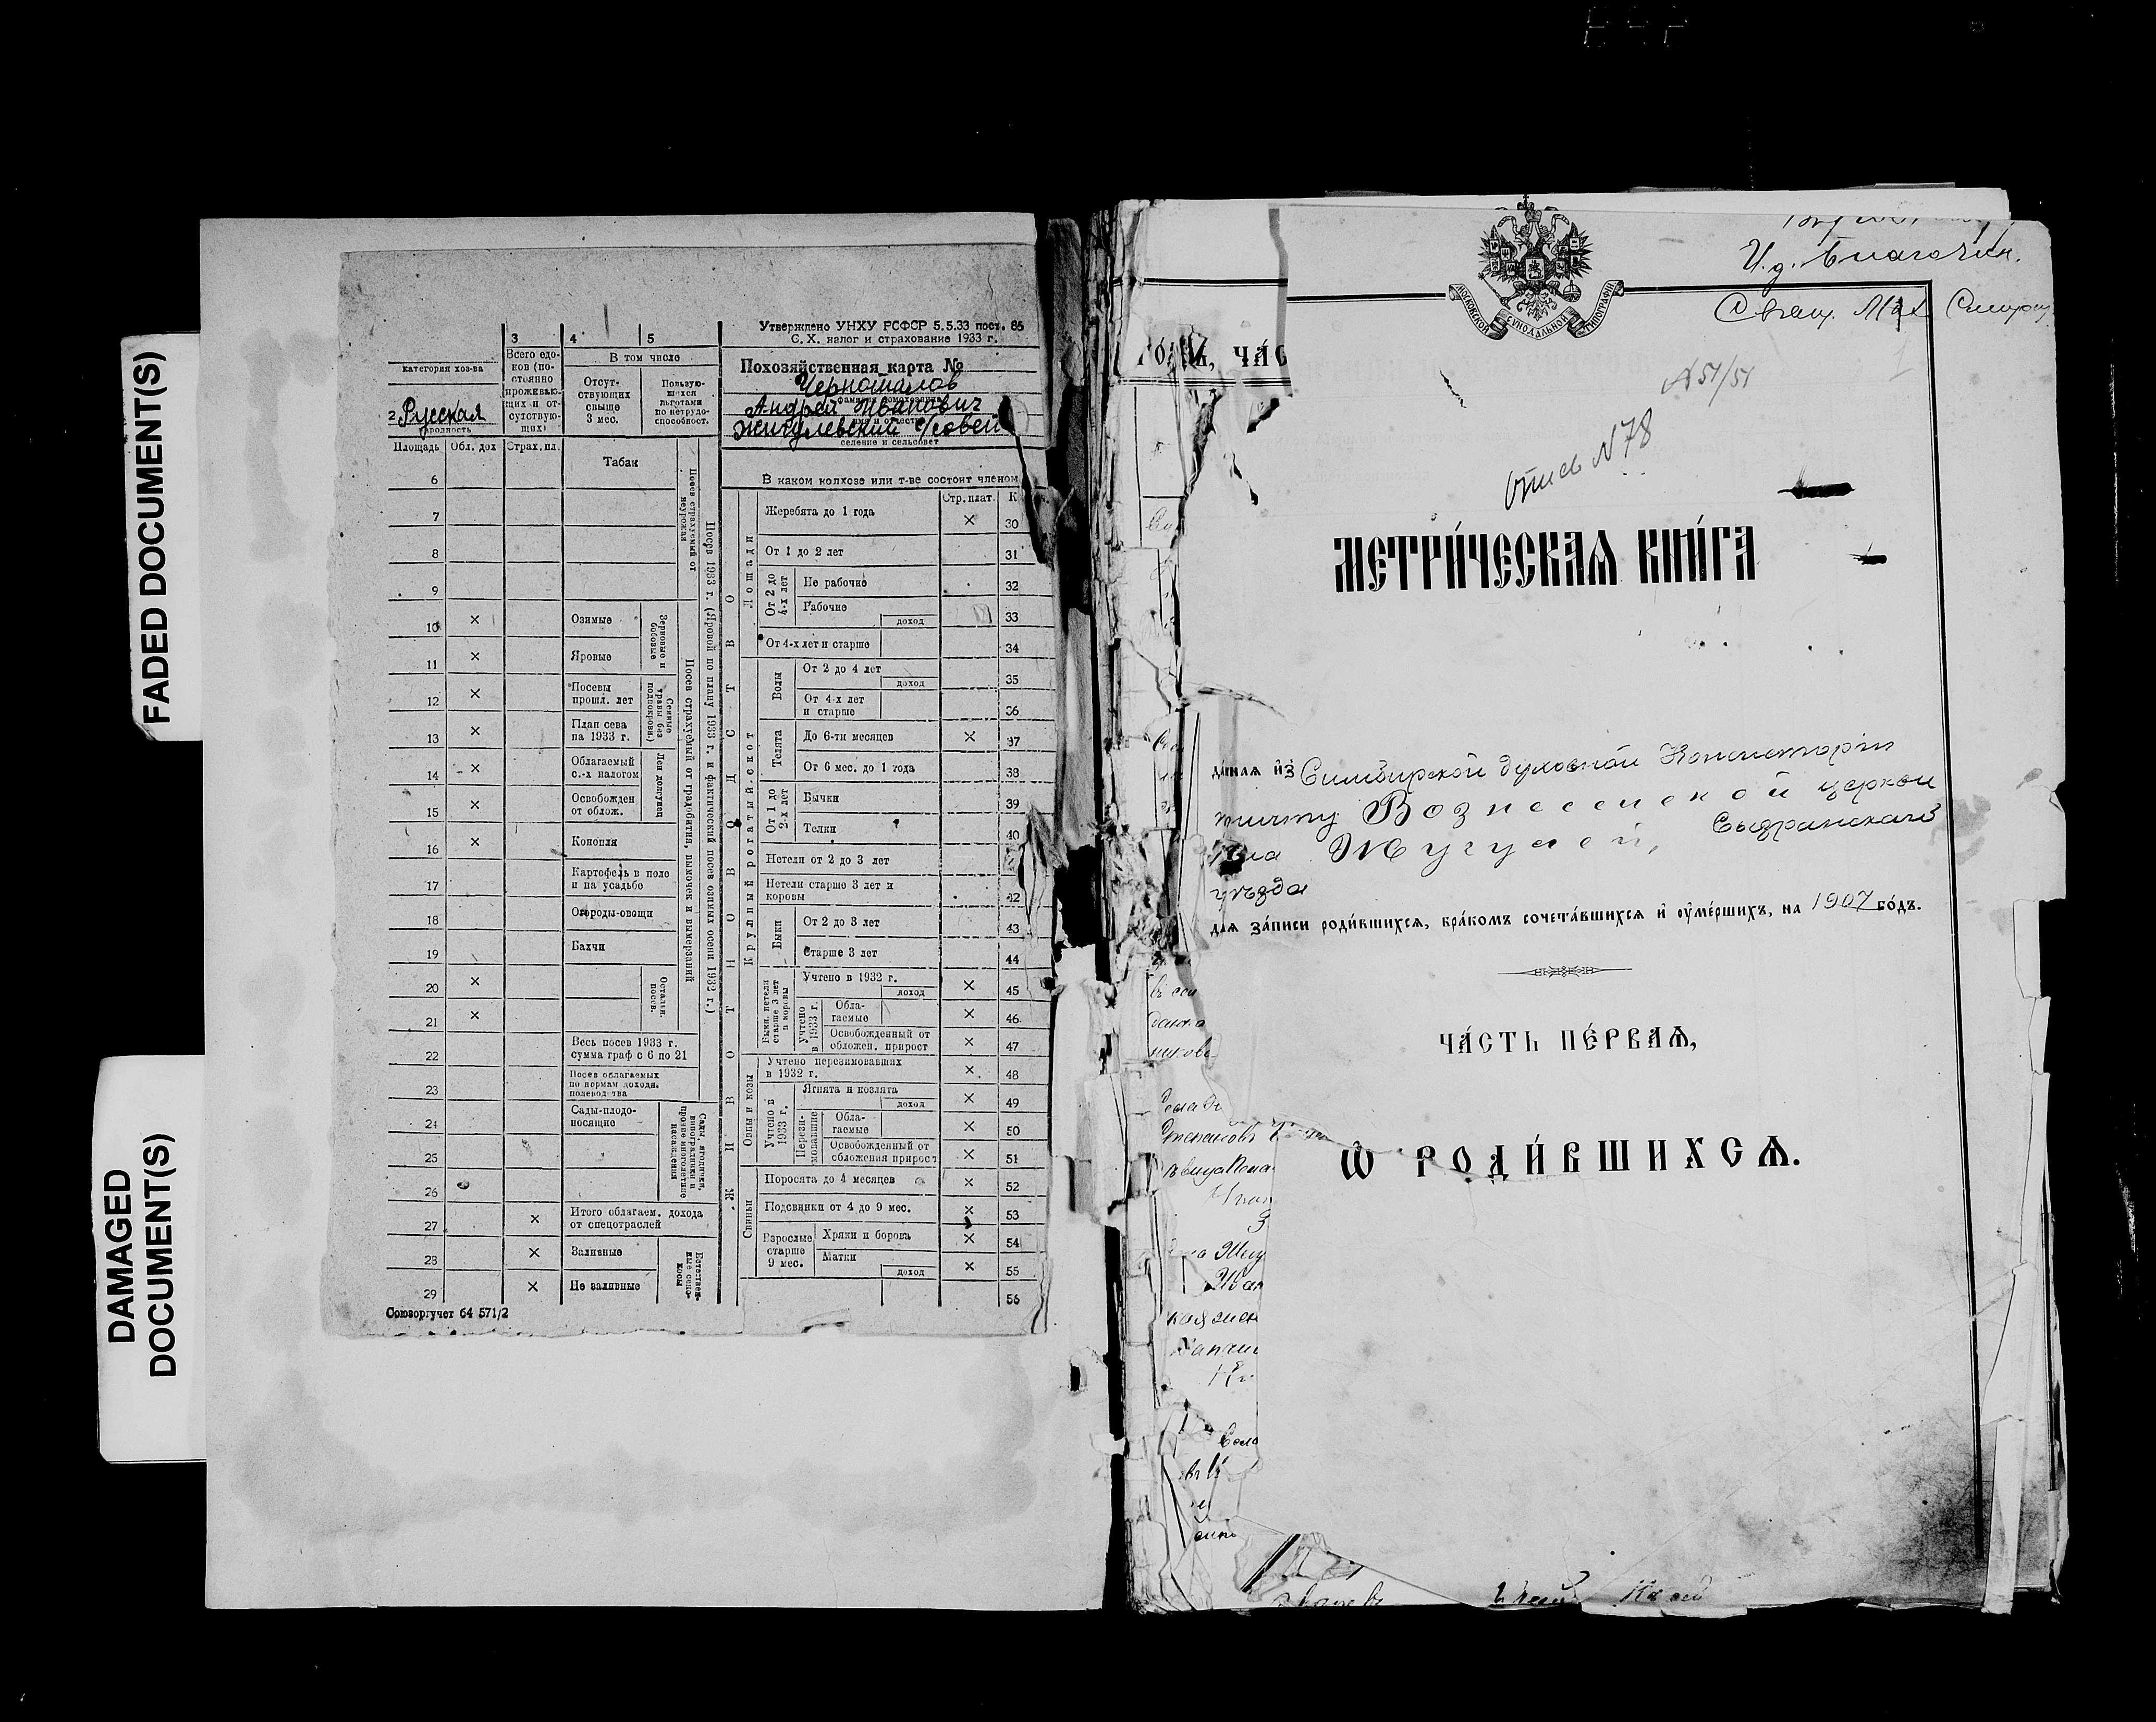 FADED DOCUMENT(S)
DAMAGED
DOCUMENT(S)
3 4 5
категория хоз-ва
Всего едо-
ков (по-
стоянно
проживаю-
щих и от-
сутствую-
щих)
В том числе
Отсут-
ствующих
свыше
3 мес.
Пользую-
щихся
льготами
по нетрудо-
способност.
2 Русская
народность
Площадь Обл. дох Страх. пл.
6
7
8
9
10 ×
11 ×
12 ×
13 ×
14 ×
15 ×
16 ×
17
18
19
20 ×
21 ×
22
23
24
25
26
27 ×
28 ×
29 ×
Табак
Озимые
Яровые
Посевы
прошл. лет
План сева
на 1933 г.
Облагаемый
с.-х налогом
Освобожден
от облож.
Конопля
Картофель в поле
и на усадьбе
Огороды-овощи
Бахчи
Весь посев 1933 г.
сумма граф с 6 по 21
Посев облагаемых
по нормам доходн.
Сады-плодо-
носящие
Итого облагаем. дохода
от спецотраслей
Заливные
Не заливные
Посев страхуемый от
неурожая
Зерновые и
бобовые
Сеяные
травы (без
подпокровн.)
Лен долгунец
Остальн.
посев.
Посев страхуемый от градобития, вымочек и вымерзаний
Посев 1933 г. (Яровой по плану 1933 г. и фактический посев озимых осени 1932 г.)
Сады, ягодники,
виноградники и
прочие многолетние
насаждения
Естествен-
ные сено-
косы
Союзоргучет 64 571/2
Утверждено УНХУ РСФСР 5.5.33 пост. 85
С. Х. налог и страхование 1933 г.
Похозяйственная карта №
Андрей Иванович
Жигулевский с/совет
селение и сельсовет
В каком колхозе или т-ве состоит членом
Стр. плат. К
Ж И В О Т Н О В О Д С Т В О
Лошади
Жеребята до 1 года × 30
От 1 до 2 лет 31
От 2 до
4-х лет
Не рабочие 32
Рабочие доход 33
От 4-х лет и старше 34
Крупный рогатый скот
Волы
От 2 до 4 лет доход 35
От 4-х лет
и старше 36
Телята
До 6-ти месяцев × 37
От 6 мес. до 1 года 38
От 1 до
2-х лет
Бычки 39
Телки 40
Нетели от 2 до 3 лет
Нетели старше 3 лет и
коровы 42
Быки
От 2 до 3 лет 43
Старше 3 лет 44
Быки, нетели
старше 3 лет
и коровы
Учтено в 1932 г. доход × 45
Учтено
в 1933 г.
Обла-
гаемые × 46
Освобожденный от
обложен. прирост × 47
Овцы и козы
Учтено перезимовавших
в 1932 г. × 48
Учтено в
1933 г.
Ягнята и козлята доход × 49
Перези-
мовавшие
Обла-
гаемые × 50
Освобожденный от
обложения прирост × 51
Свиньи
Поросята до 4 месяцев × 52
Подсвинки от 4 до 9 мес. × 53
Взрослые
старше
9 мес.
Хряки и боровы × 54
Матки доход × 55
56
ЧАС
МОСКОВСКОЙ СѴНОДАЛЬНОЙ ТИПОГРАФІИ
И.д. Благочин.
Свящ. Мих Смирн
N 51/51
Опись N 78
МЕТРИ́ЧЕСКАѦ КНИ́ГА
да́ннаѧ и҆з̾ Симбирской духовной Консисторіи
причту Вознесенской церкви
села Жигулей, Сызранскаго
уѣзда
длѧ за́писи роди́вшихсѧ, бра́комъ сочета́вшихсѧ и҆ ᲂу҆ме́ршихъ, на 1907 го́дъ.
ЧА́СТЬ ПЕ́РВАѦ,
Ѡ҆ РОДИ́ВШИХСѦ.